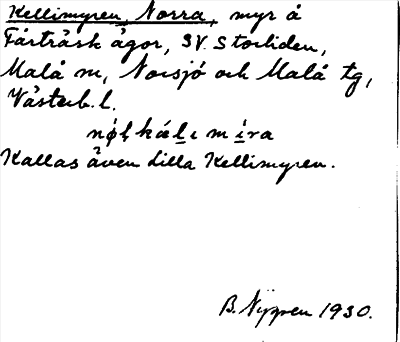 Kellimyren, Norra, myr å
Fårträsk ägor, SV. Storliden,
Malå sn, Norsjö och Malå tg,
Västerb. l.
kǽlı míra
Kallas även Lilla Kellimyren.
B. Nygren 1930.